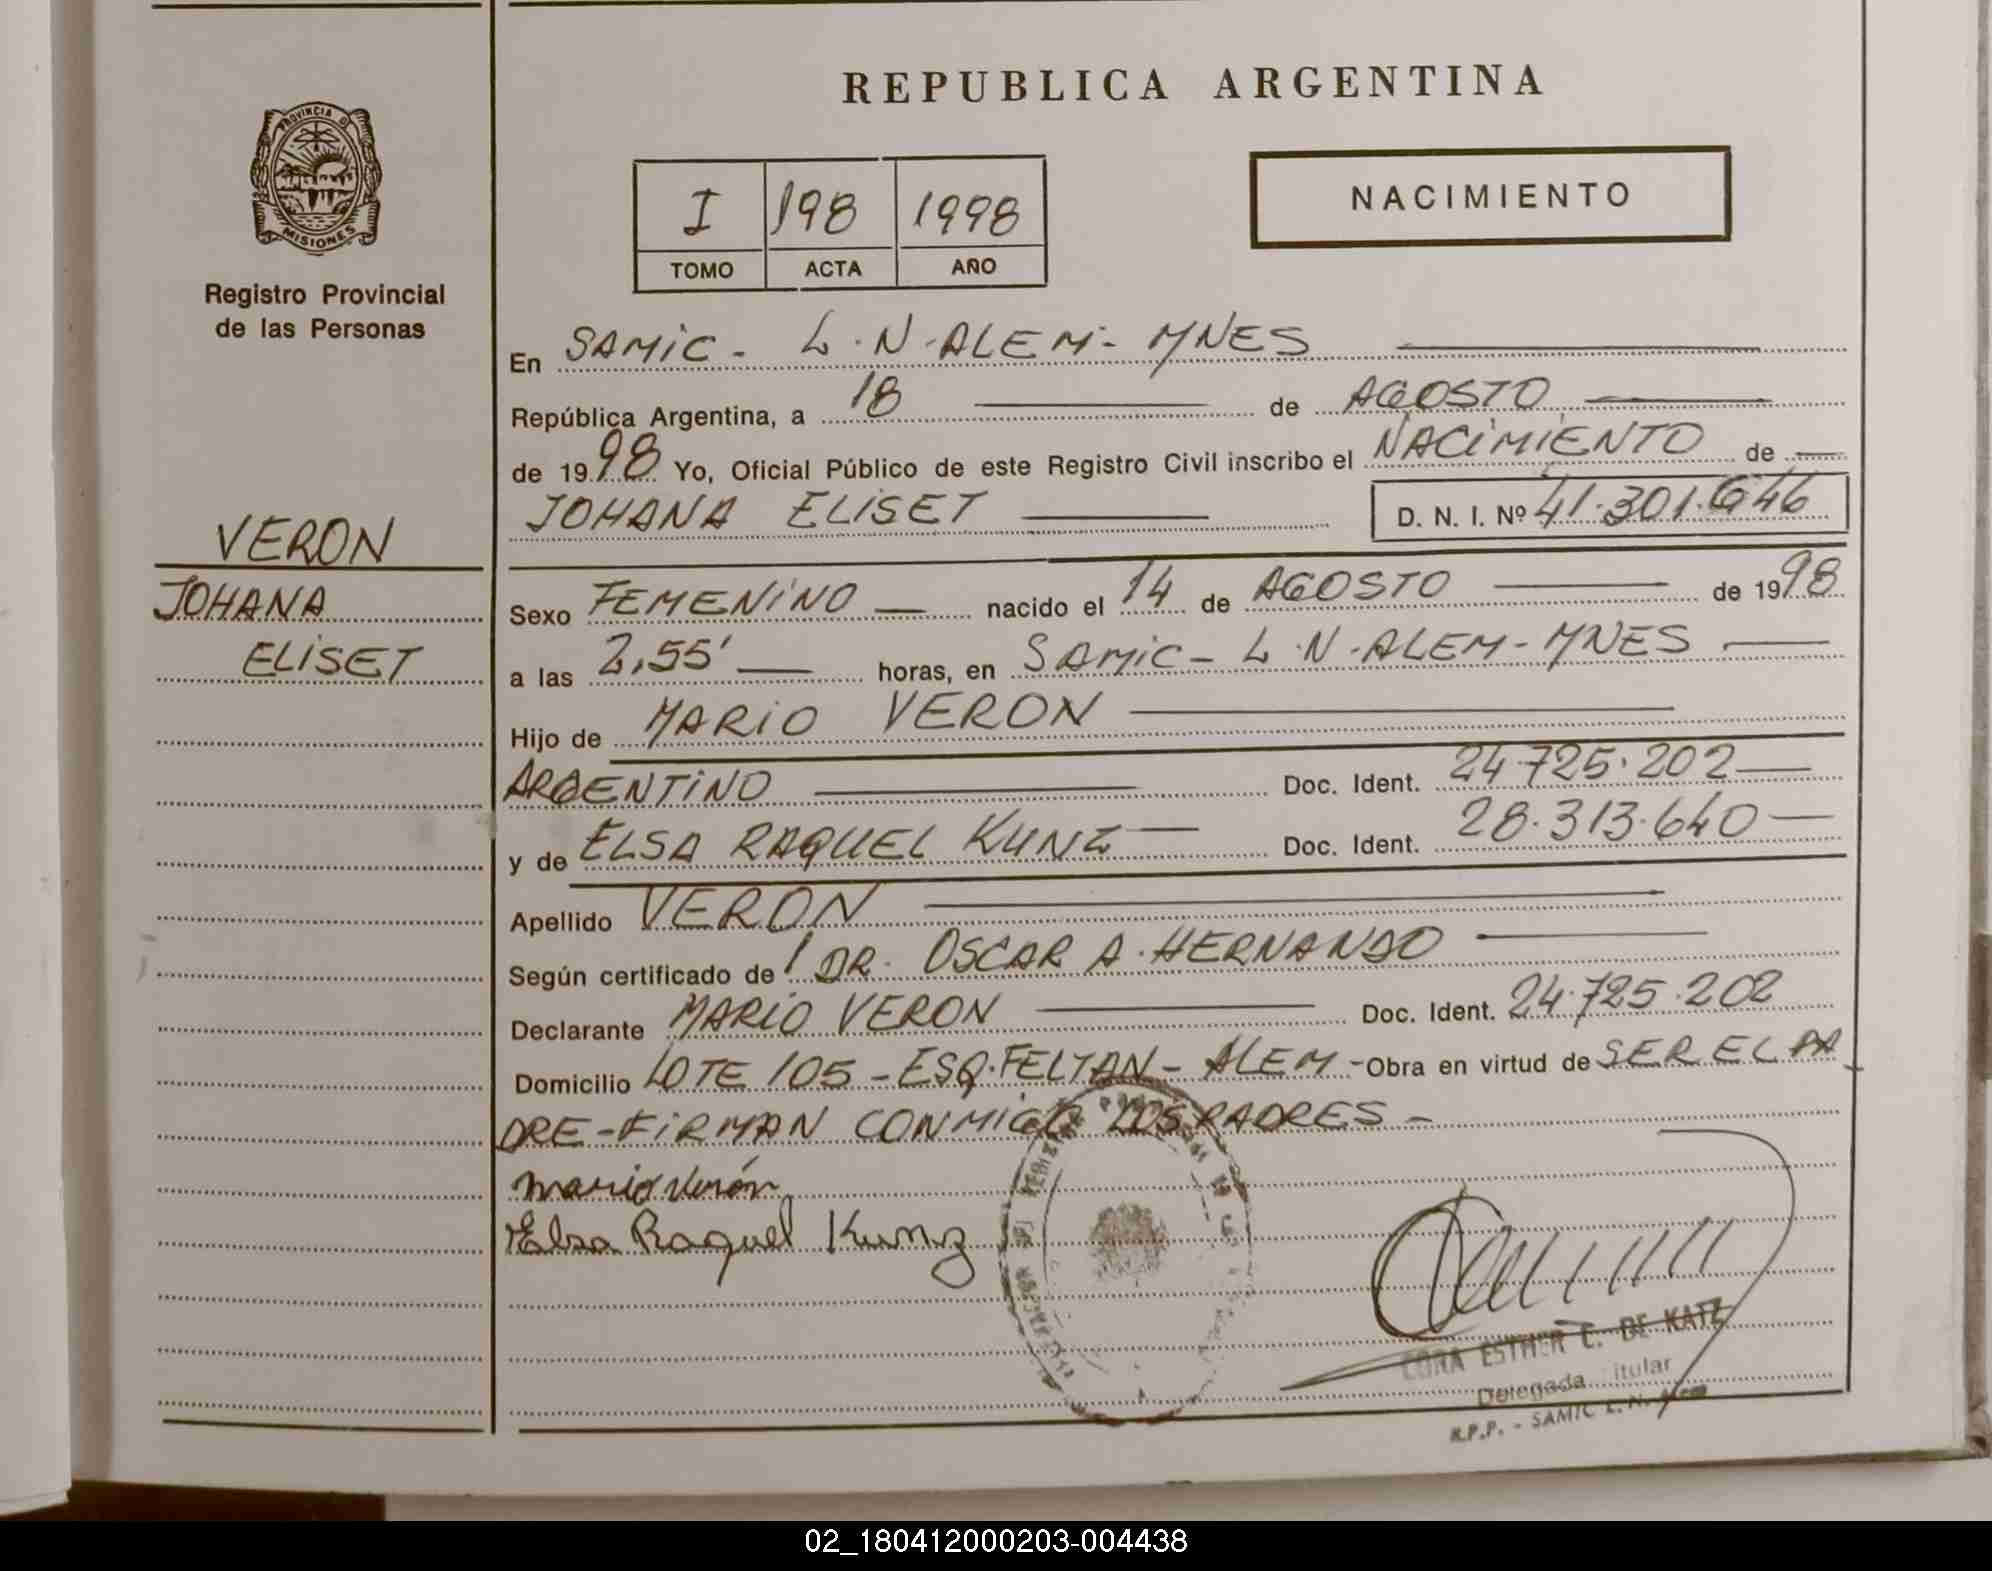 REPUBLICA ARGENTINA
PROVINCIA D
MISIONES
Registro Provincial
de las Personas
I 198 1998
TOMO ACTA AÑO
NACIMIENTO
En SAMIC - L.N.ALEM - MNES
República Argentina, a 18 de AGOSTO
de 1998 Yo, Oficial Público de este Registro Civil inscribo el NACIMIENTO de
JOHANA ELISET D. N. I. Nº 41.301.646
VERON
JOHANA
ELISET
Sexo FEMENINO nacido el 14 de AGOSTO de 1998
a las 2,55' horas, en SAMIC - L.N.ALEM - MNES
Hijo de MARIO VERON
ARGENTINO Doc. Ident. 24.725.202
y de ELSA RAQUEL KUNZ Doc. Ident. 28.313.640
Apellido VERON
Según certificado de DR. OSCAR A. HERNANDO
Declarante MARIO VERON Doc. Ident. 24.725.202
Domicilio LOTE 105 - ESQ. FELTAN - ALEM - Obra en virtud de SER EL PA
DRE - FIRMAN CONMIGO LOS PADRES -
Mario Verón
Elsa Raquel Kunz
CORA ESTHER C. DE KATZ
Delegada Titular
R.P.P. - SAMIC L. N. Alem
02_180412000203-004438